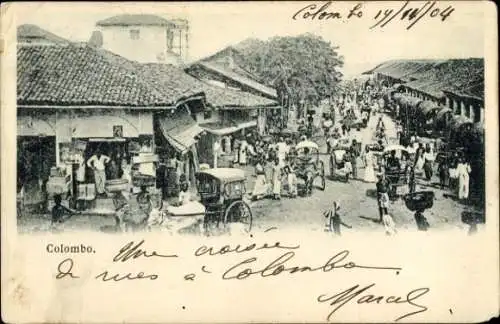 Colombo 17/11/04
Colombo.
Une croisée
de rues à Colombo
Marcel